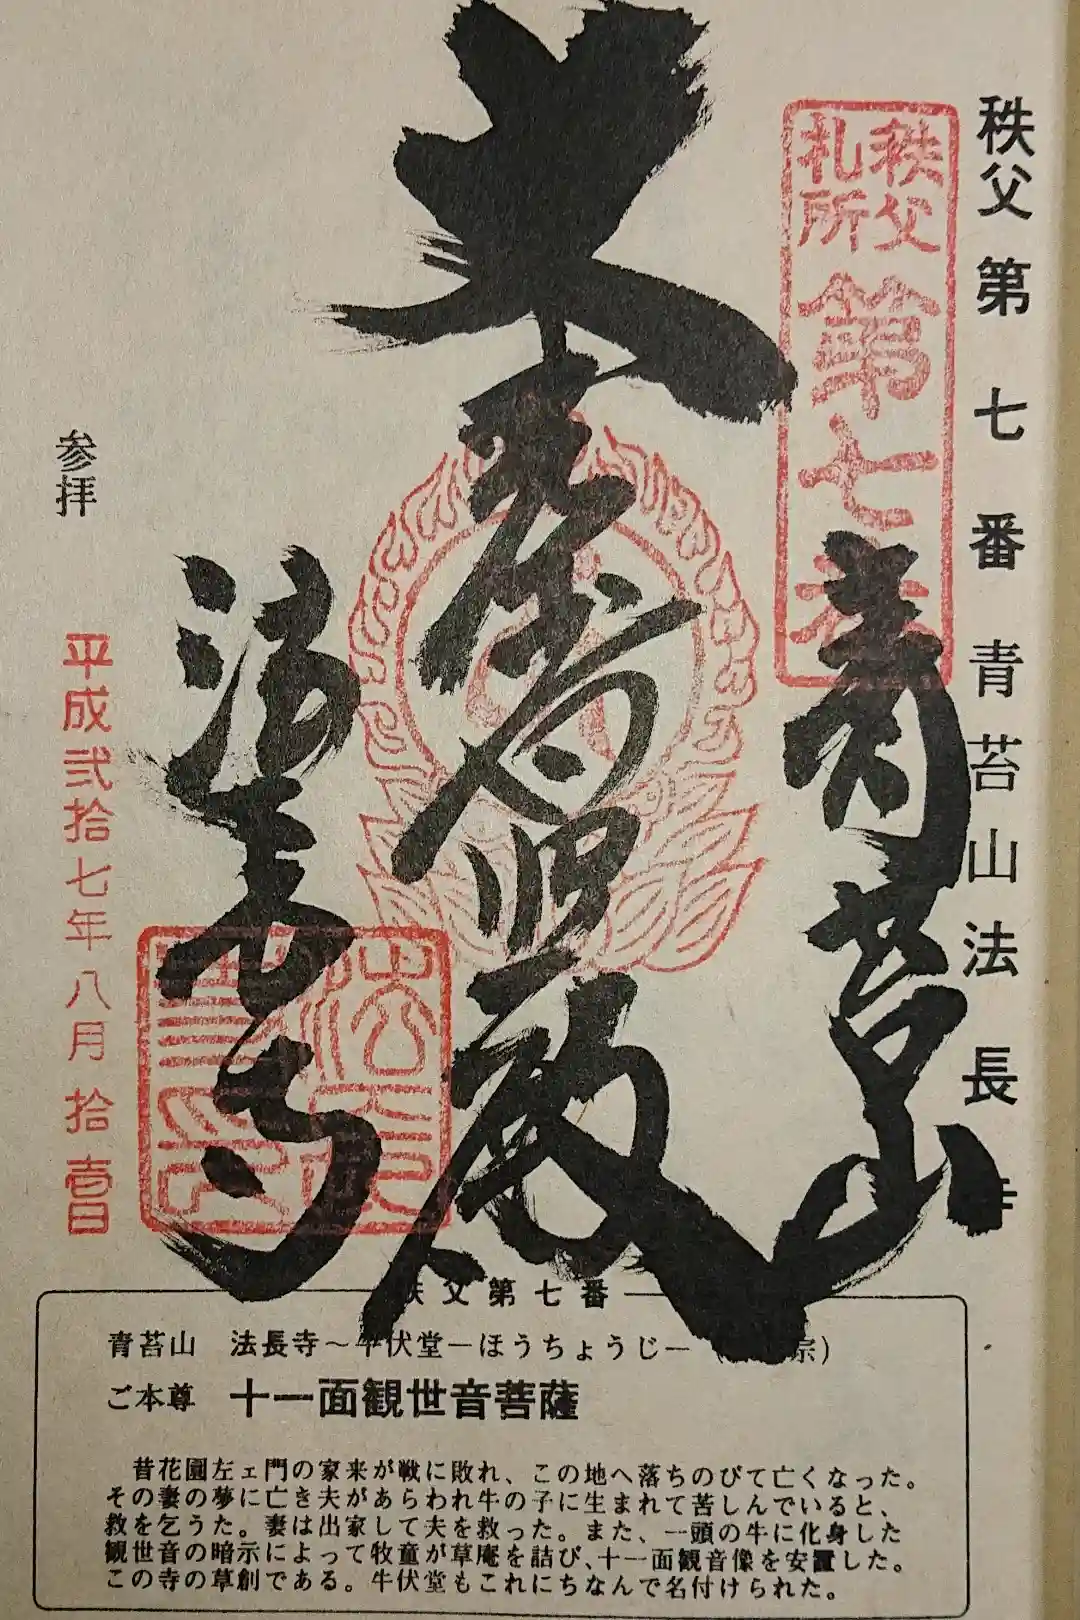 秩父第七番 青苔山法長寺
秩父
札所
第七番
青苔山
大悲殿
法長寺
参拝
平成弐拾七年八月拾壹日
秩父第七番
青苔山 法長寺～牛伏堂―ほうちょうじ―(宗)
ご本尊 十一面観世音菩薩
昔花園左ェ門の家来が戦に敗れ、この地へ落ちのびて亡くなった。
その妻の夢に亡き夫があらわれ牛の子に生まれて苦しんでいると、
救を乞うた。妻は出家して夫を救った。また、一頭の牛に化身した
観世音の暗示によって牧童が草庵を詰び、十一面観音像を安置した。
この寺の草創である。牛伏堂もこれにちなんで名付けられた。